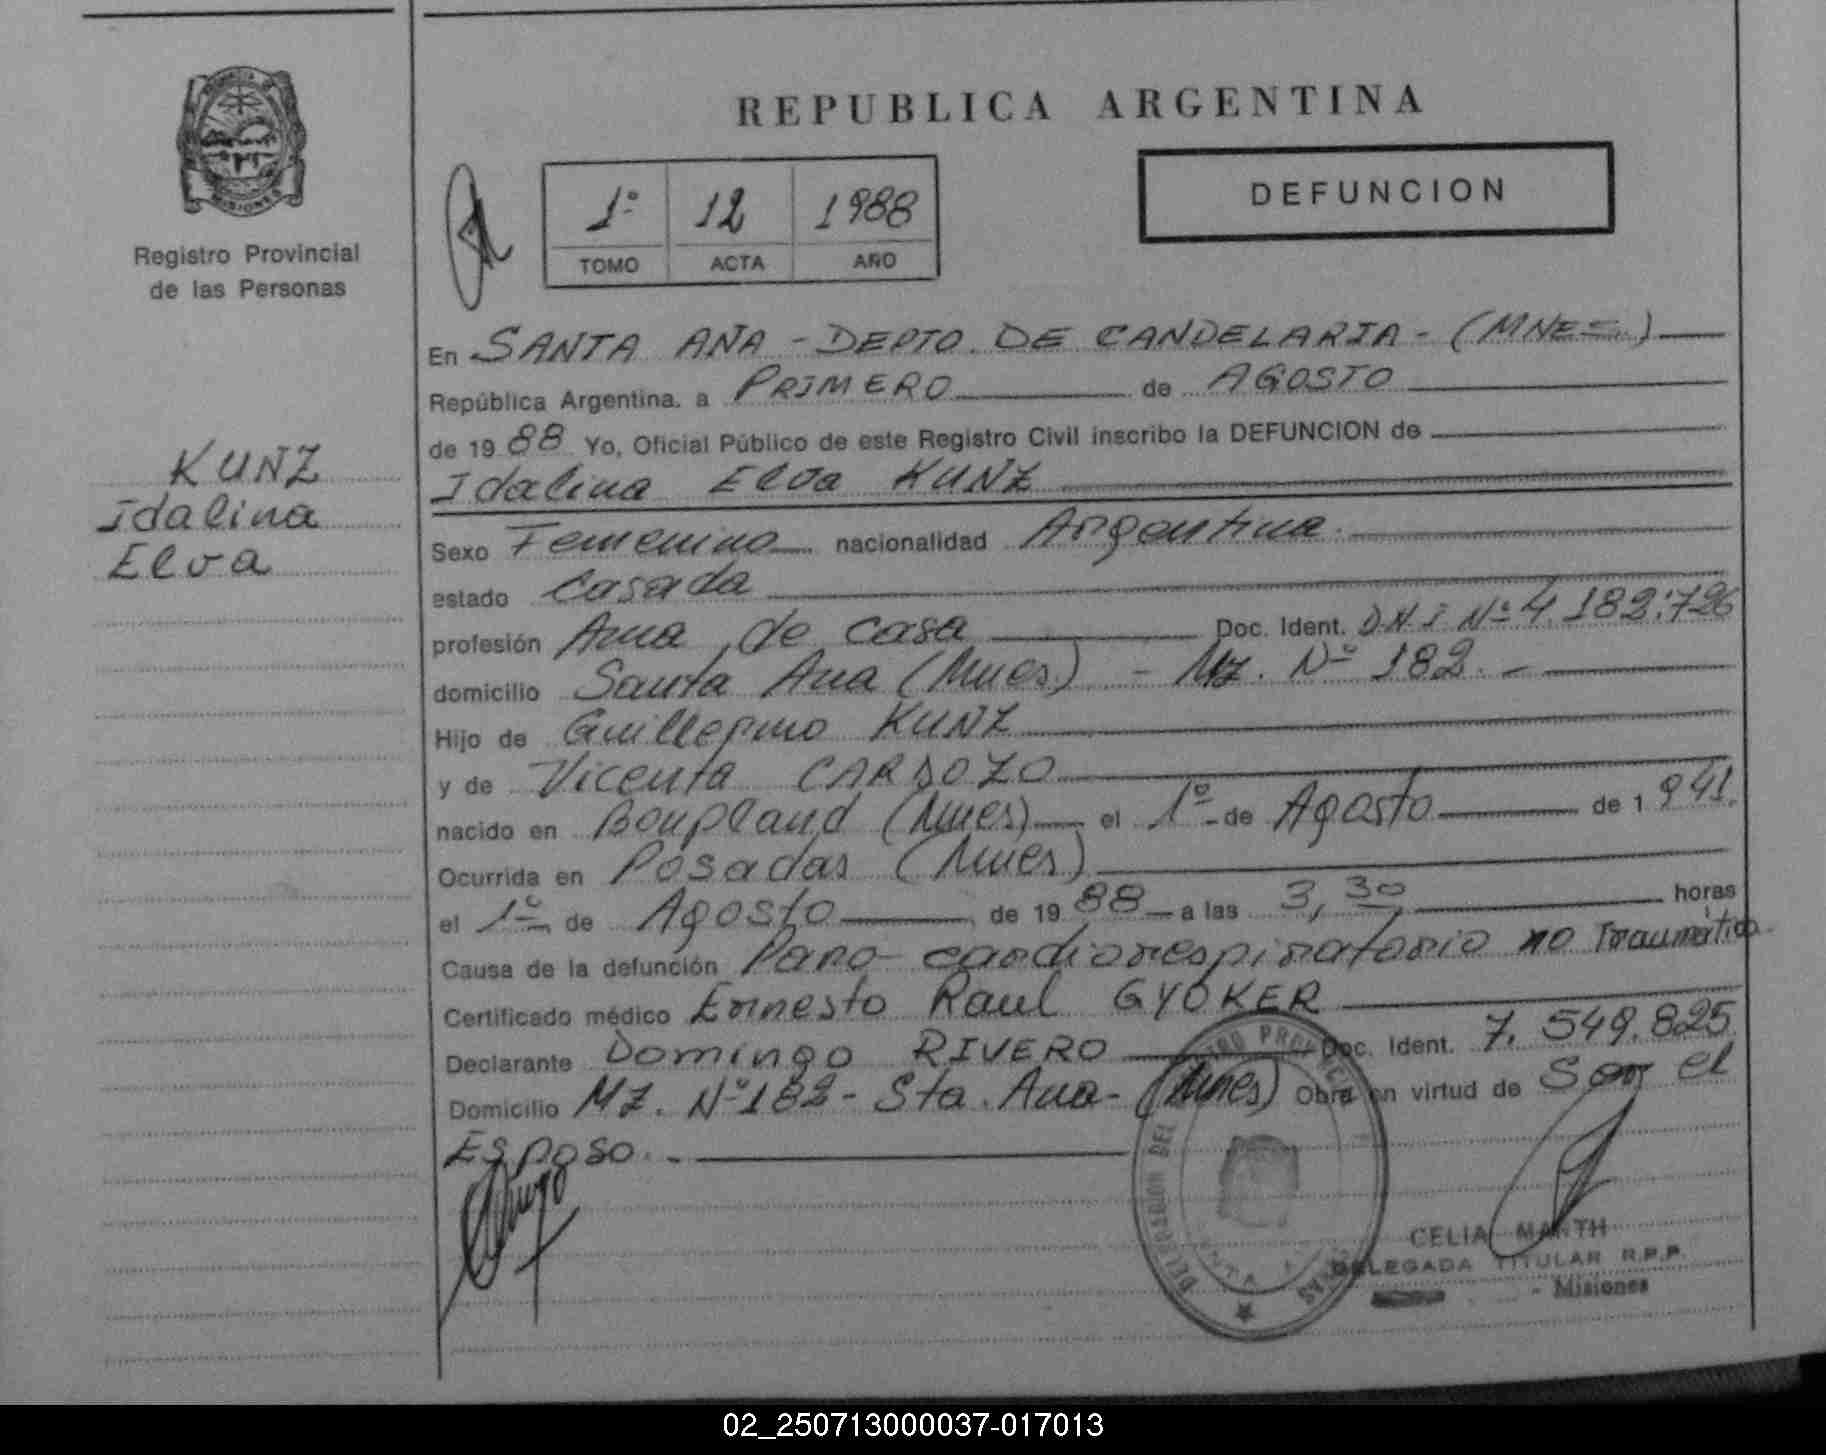 REPUBLICA ARGENTINA
MISIONES
Registro Provincial
de las Personas
1º 12 1988
TOMO ACTA AÑO
DEFUNCION
KUNZ
Idalina
Elva
En SANTA ANA - DEPTO. DE CANDELARIA - (MNES.)
República Argentina, a PRIMERO de AGOSTO
de 19 88 Yo, Oficial Público de este Registro Civil inscribo la DEFUNCION de
Idalina Elva KUNZ
Sexo Femenino nacionalidad Argentina.
estado Casada
profesión Ama de casa Doc. Ident. DNI Nº 4.182.726
domicilio Santa Ana (Mnes.) - Mz. Nº 182. -
Hijo de Guillermo KUNZ
y de Vicenta CARDOZO
nacido en Bonpland (Mnes) el 1º de Agosto de 1 941.
Ocurrida en Posadas (Mnes)
el 1º de Agosto de 19 88 a las 3,30 horas
Causa de la defunción Paro cardiorespiratorio no Traumático
Certificado médico Ernesto Raul GYOKER
Declarante Domingo RIVERO Doc. Ident. 7.549.825
Domicilio MZ. Nº 182 - Sta. Ana - (Mnes) Obra en virtud de Ser el
Esposo. -
CELIA MARTH
DELEGADA TITULAR R.P.P.
- Misiones
02_250713000037-017013